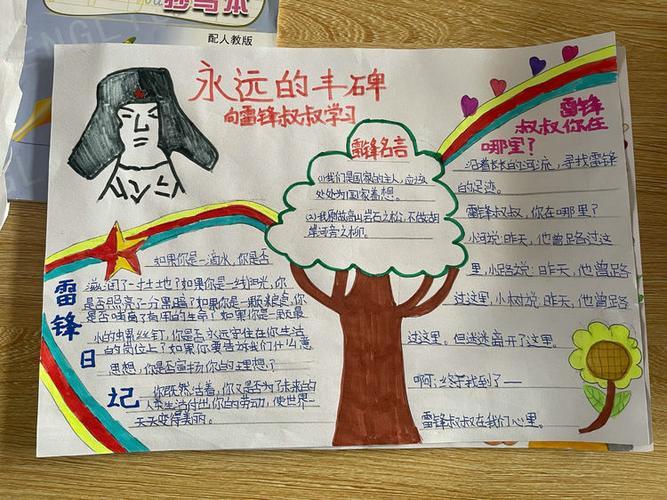 抄写本
配人教版
永远的丰碑
向雷锋叔叔学习
雷锋名言
(1)我们是国家的主人，应该
处处为国家着想。
(2)我愿做高山岩石之松，不做湖
岸河旁之柳。
雷锋
叔叔你在
哪里？
沿着长长的河流，寻找雷锋
的足迹。
雷锋叔叔，你在哪里
小河说：昨天，他曾路过这
里，小路说：昨天，他曾路
过这里，小树说：昨天，他曾路
过这里。但迷迷离开了这里。
啊！终于找到了——
雷锋叔叔在我们心里。
雷锋日记
如果你是一滴水，你是否
滋润了一寸土地？如果你是一线阳光，你
是否照亮了一分黑暗？如果你是一颗粮食，你
是否哺育了有用的生命？如果你是一颗最
小的螺丝钉，你是否永远守住在你生活
的岗位上？如果你要告诉我们什么
思想，你是否宣扬你的理想？
你既然活着，你又是否为了未来的
人类生活付出你的劳动，使世界一
天天变得美丽。